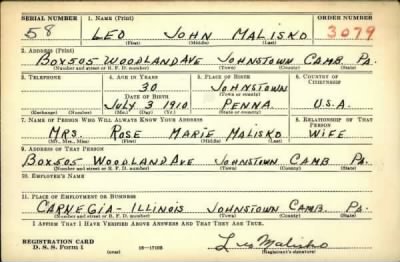 SERIAL NUMBER 1. NAME (Print) ORDER NUMBER
58 LEO JOHN MALISKO 3079
(First) (Middle) (Last)
2. ADDRESS (Print)
BOX 505 WOODLAND AVE JOHNSTOWN CAMB. PA.
(Number and street or R. F. D. number) (Town) (County) (State)
3. TELEPHONE 4. AGE IN YEARS 5. PLACE OF BIRTH 6. COUNTRY OF CITIZENSHIP
30 JOHNSTOWN
DATE OF BIRTH (Town or county)
JULY 3 1910 PENNA. U.S.A.
(Exchange) (Number) (Mo.) (Day) (Yr.) (State or country)
7. NAME OF PERSON WHO WILL ALWAYS KNOW YOUR ADDRESS 8. RELATIONSHIP OF THAT PERSON
MRS. ROSE MARIE MALISKO WIFE
(Mr., Mrs., Miss) (First) (Middle) (Last)
9. ADDRESS OF THAT PERSON
BOX 505 WOODLAND AVE JOHNSTOWN CAMB PA.
(Number and street or R. F. D. number) (Town) (County) (State)
10. EMPLOYER'S NAME
11. PLACE OF EMPLOYMENT OR BUSINESS
CARNEGIA-ILLINOIS JOHNSTOWN CAMB. PA.
(Number and street or R. F. D. number) (Town) (County) (State)
I AFFIRM THAT I HAVE VERIFIED ABOVE ANSWERS AND THAT THEY ARE TRUE.
REGISTRATION CARD
D. S. S. Form 1 (over) Leo Malisko
(Registrant's signature)